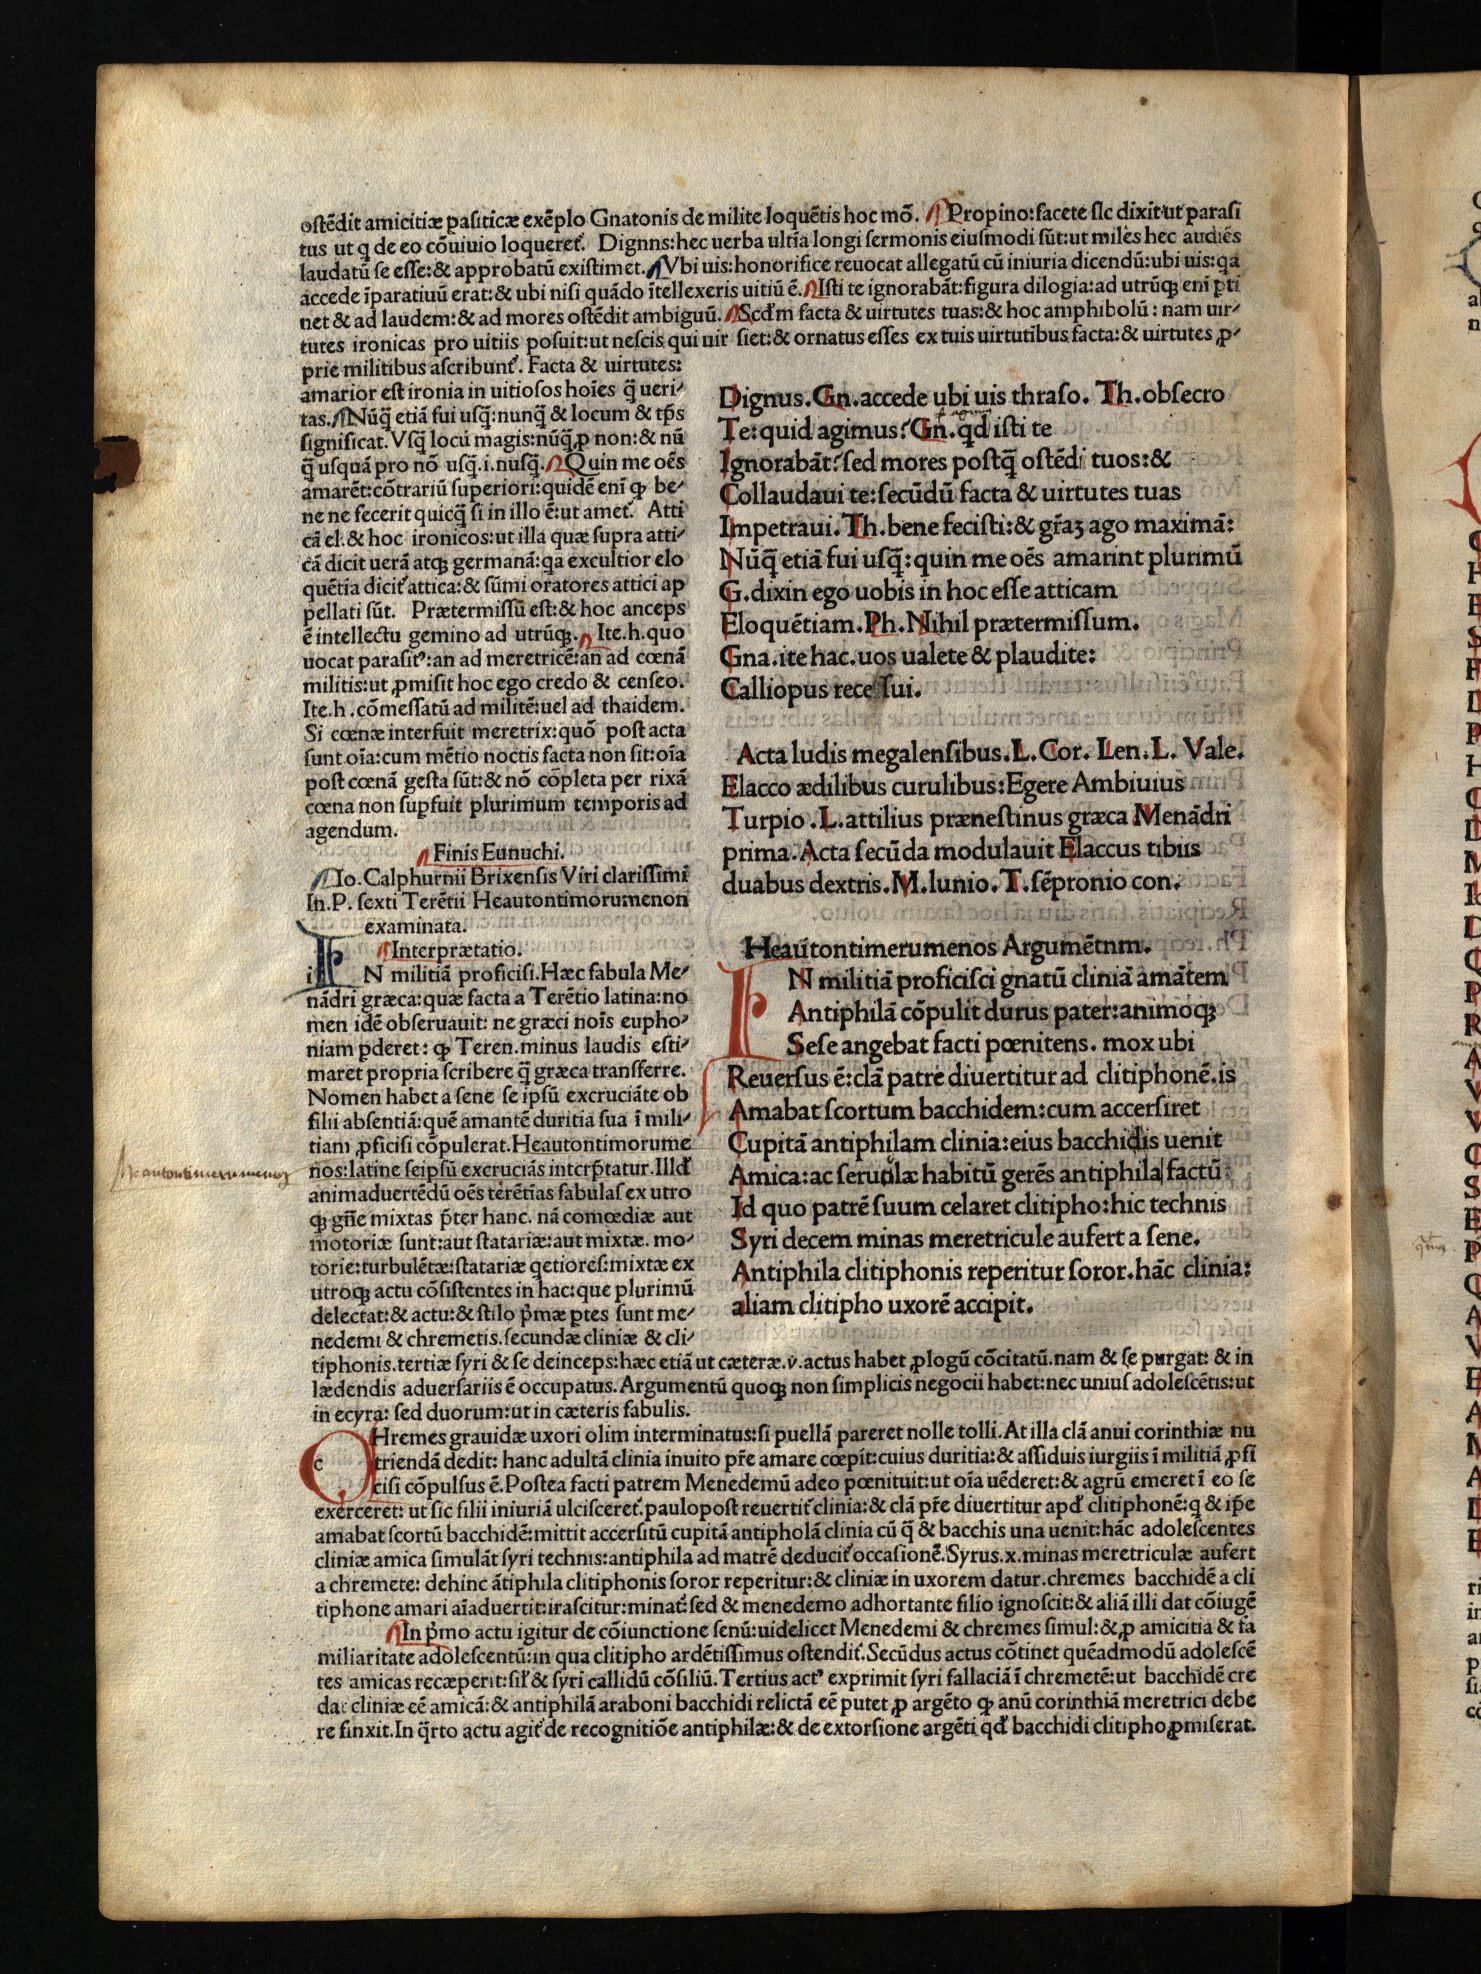 ostēdit amicitiæ pasiticæ exēplo Gnatonis de milite loquētis hoc mō. Propino:facete sic dixit:ut parasi
tus ut q de eo cōuiuio loqueret᷑. Dignns:hec uerba ultīa longi sermonis eiusmodi sūt:ut miles hec audiēs
laudatū se esse:& approbatū existimet. Vbi uis:honorifice reuocat allegatū cū iniuria dicendū:ubi uis:qa
accede īparatiuū erat:& ubi nisi quādo ītellexeris uitiū ē. Isti te ignorabāt:figura dilogia:ad utrūqꝫ enī ꝑti
net & ad laudem:& ad mores ostēdit ambiguū. Scd'm facta & uirtutes tuas:& hoc amphibolū : nam uir-
tutes ironicas pro uitiis posuit:ut nescis qui uir siet:& ornatus esses ex tuis uirtutibus facta:& uirtutes ꝓ-
prie militibus ascribunt᷑. Facta & uirtutes:
amarior est ironia in uitiosos hoīes q̄ ueri-
tas. Nūq̄ etiā fui usq̄:nunq̄ & locum & tp̄s
significat. Vsq̄ locū magis:nūq̄ ꝓ non:& nū
q̄ usquā pro nō usq̄.i.nusq̄. Quin me oēs
amarēt:cōtrariū superiori:quidē enī ꝙ be-
ne ne fecerit quicq̄ si in illo ē:ut amet᷑. Atti
cā el.& hoc ironicos:ut illa quæ supra atti-
cā dicit uerā atqꝫ germanā:qa excultior elo
quētia dicit᷑ attica:& sūmi oratores attici ap
pellati sūt. Prætermissū est:& hoc anceps
ē intellectu gemino ad utrūqꝫ. Ite.h.quo
uocat parasitꝰ:an ad meretricē:an ad cœnā
militis:ut ꝓmisit hoc ego credo & censeo.
Ite.h.cōmessatū ad militē:uel ad thaidem.
Si cœnæ interfuit meretrix:quō post acta
sunt oīa:cum mētio noctis facta non sit:oīa
post cœnā gesta sūt:& nō cōpleta per rixā
cœna non supfuit plurimum temporis ad
agendum.
Finis Eunuchi.
Io.Calphurnii Brixensis Viri clarissimi
In.P. sexti Terētii Heautontimorumenon
examinata.
Interprætatio.
i N militiā proficisi.Hæc fabula Me-
nādri græca:quæ facta a Terētio latina:no
men idē obseruauit: ne græci noīs eupho-
niam pderet: ꝙ Teren.minus laudis esti-
maret propria scribere q̄ græca transferre.
Nomen habet a sene se ipsū excruciāte ob
filii absentiā:quē amantē duritia sua ī mili-
tiam ꝓficisi cōpulerat.Heautontimorume
nos:latine seipsū excruciās interp̄tatur.Illd'
animaduertēdū oēs terētīas fabulas ex utro
qꝫ gn̄e mixtas p̄ter hanc. nā comœdiæ aut
motoriæ sunt:aut statariæ:aut mixtæ. mo-
torie:turbulētæ:statariæ qetiores:mixtæ ex
utroqꝫ actu cōsistentes in hac:que plurimū
delectat:& actu:& stilo p̄mæ ptes sunt me-
nedemi & chremetis.secundæ cliniæ & cli-
Dignus.Gn.accede ubi uis thraso. Th.obsecro
Te:quid agimus? Gn.qd isti te
Ignorabāt:sed mores postq̄ ostēdi tuos:&
Collaudaui te:secūdū facta & uirtutes tuas
Impetraui.Th.bene fecisti:& gr̄aꝫ ago maximā:
Nūq̄ etiā fui usq̄:quin me oēs amarint plurimū
G.dixin ego uobis in hoc esse atticam
Eloquētiam.Ph.Nihil prætermissum.
Gna.ite hac.uos ualete & plaudite:
Calliopus rece sui.
Acta ludis megalensibus.L.Cor. Len.L. Vale.
Elacco ædilibus curulibus:Egere Ambiuius
Turpio .L.attilius prænestinus græca Menādri
prima.Acta secūda modulauit Elaccus tibiis
duabus dextris.M.Iunio.T.sēpronio con.
Heautontimerumenos Argumētnm.
IN militiā proficisci gnatū cliniā amātem
Antiphilā cōpulit durus pater:animoqꝫ
Sese angebat facti pœnitens. mox ubi
Reuersus ē:clā patre diuertitur ad clitiphonē.is
Amabat scortum bacchidem:cum accersiret
Cupitā antiphilam clinia:eius bacchidis uenit
Amica:ac seruulæ habitū gerēs antiphila factū
Id quo patrē suum celaret clitipho:hic technis
Syri decem minas meretricule aufert a sene.
Antiphila clitiphonis reperitur soror.hāc clinia:
aliam clitipho uxorē accipit.
tiphonis.tertiæ syri & se deinceps:hæc etiā ut cæteræ.v.actus habet ꝓlogū cōcitatū.nam & se purgat: & in
lædendis aduersariis ē occupatus.Argumentū quoqꝫ non simplicis negocii habet:nec unius adolescētis:ut
in ecyra: sed duorum:ut in cæteris fabulis.
c Hremes grauidæ uxori olim interminatus:si puellā pareret nolle tolli.At illa clā anui corinthiæ nu
triendā dedit: hanc adultā clinia inuito pr̄e amare cœpit:cuius duritia:& assiduis iurgiis ī militiā ꝓfi
cisi cōpulsus ē.Postea facti patrem Menedemū adeo pœnituit:ut oīa uēderet:& agrū emeret ī eo se
exerceret: ut sic filii iniuriā ulcisceret᷑.paulopost reuertit᷑ clinia:& clā pr̄e diuertitur apd' clitiphonē:q & ip̄e
amabat scortū bacchidē:mittit accersitū cupitā antipholā clinia cū q̄ & bacchis una uenit:hāc adolescentes
cliniæ amica simulāt syri technis:antiphila ad matrē deducit᷑ occasionē.Syrus.x.minas meretriculæ aufert
a chremete: dehinc ātiphila clitiphonis soror reperitur:& cliniæ in uxorem datur.chremes bacchidē a cli
tiphone amari aīaduertit:irascitur:minat᷑:sed & menedemo adhortante filio ignoscit:& aliā illi dat cōiugē
In p̄mo actu igitur de cōiunctione senū:uidelicet Menedemi & chremes simul:& ꝓ amicitia & fa
miliaritate adolescentū:in qua clitipho ardētissimus ostendit᷑.Secūdus actus cōtinet quēadmodū adolescē
tes amicas recæperit:sil' & syri callidū cōsiliū.Tertius actꝰ exprimit syri fallaciā ī chremetē:ut bacchidē cre
dat cliniæ eē amicā:& antiphilā araboni bacchidi relictā eē putet ꝓ argēto ꝙ anū corinthiā meretrici debe
re finxit.In q̄rto actu agit᷑ de recognitiōe antiphilæ:& de extorsione argēti qd' bacchidi clitipho ꝓmiserat.